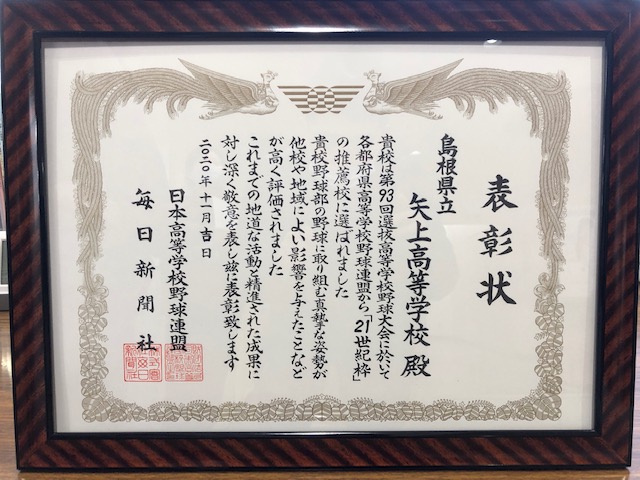 表彰状
島根県立
矢上高等学校殿
貴校は第93回選抜高等学校野球大会に於いて
各都府県高等学校野球連盟から「21世紀枠」
の推薦校に選ばれました
貴校野球部の野球に取り組む真摯な姿勢が
他校や地域によい影響を与えたことなど
が高く評価されました
これまでの地道な活動と精進された成果に
対し深く敬意を表し茲に表彰致します
二〇二〇年十一月吉日
日本高等学校野球連盟
毎日新聞社